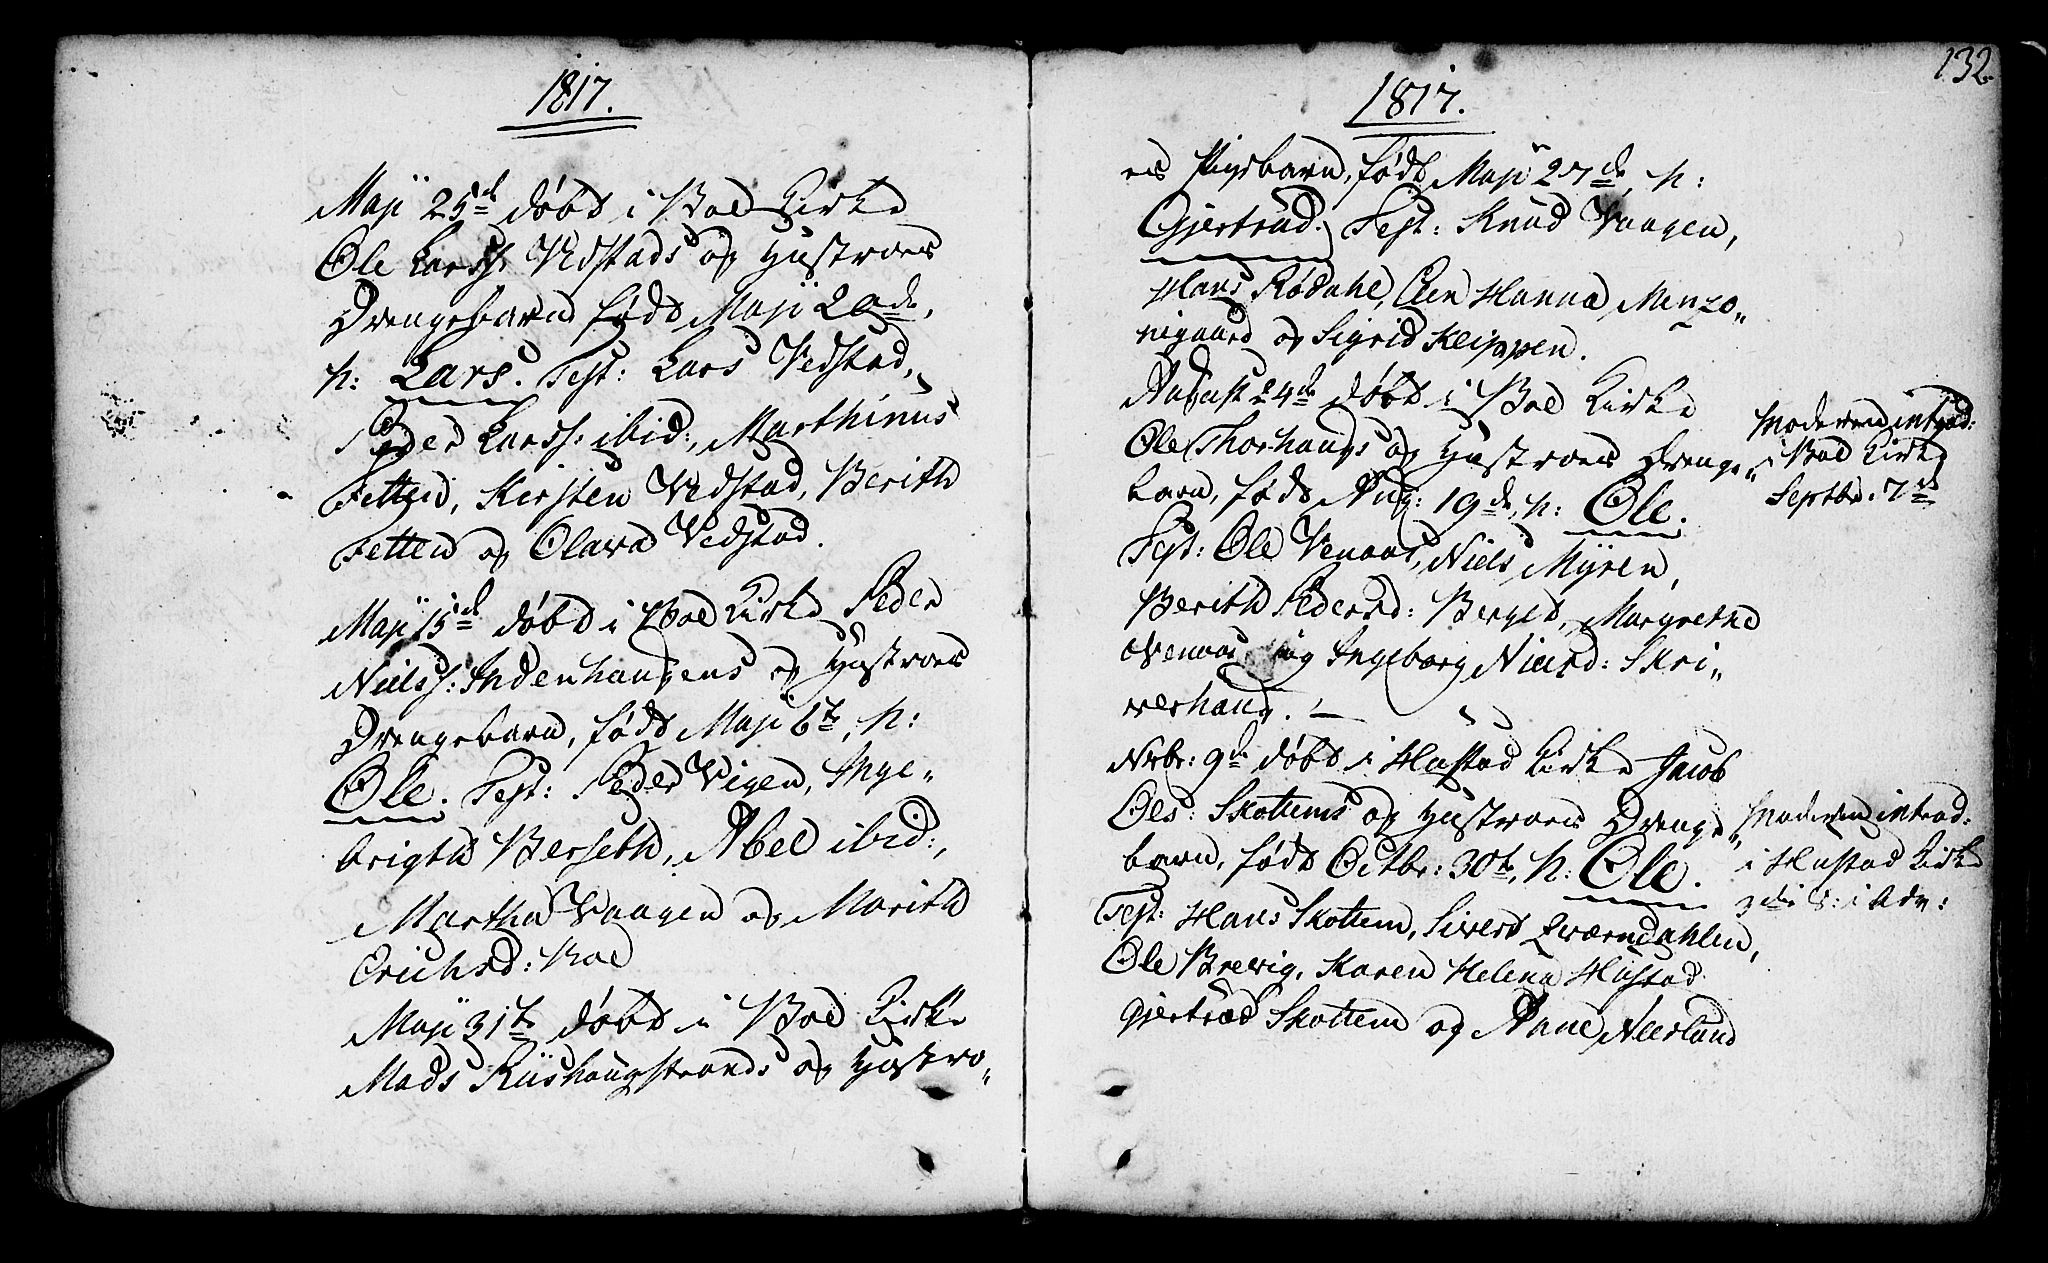 1817.
Maji 25de døbt i Boe Kirke
Ole Larss: Vedstads og Hustroes
Drengebarn født Maji 20de,
N: Lars. Test: Lars Vedstad,
Peder Larss: ibid:, Marthinus
Fetten, Kirsten Vedstad, Berith
Fetten og Olava Vedstad.
Maji 15de døbt i Boe Kirke Peder
Nielss: Indenhaugens og Hustroes
Drengebarn, født Maji 6te, N:
Ole. Test: Peder Vigen, Inge„
brigth Berseth, Abel ibid:,
Martha Vaagen og Marith
Erichsd: Boe
Maji 31te døbt i Boe Kirke
Mads Riishaugstrands og Hustro„
132.
1817.
es Pigebarn, født Maji 27de, N:
Gjertrud. Test: Knud Vaagen,
Hans Rødahl, Hanna
og Sigrid Kleippen.
August 24de døbt i Boe Kirke
Ole Thorhaugs og Hustroes Drenge„
barn, født Aug: 19de, N: Ole.
Test: Ole Venaas, Niels Myren,
Berith Pedersd: Berget, Margrethe
Venaas og Ingeborg Nielsd: Skri„
verhaug.
Moderen introd:
i Boe Kirke
Septbr: 7de
Nvbr: 9de døbt i Hustad Kirke Jacob
Ols: Skottems og Hustroes Drenge„
barn, født Octbr: 30te, N: Ole.
Test: Hans Skottem, Sivert Qværndahlen,
Ole Brevig, Karen Helena Hustad
Gjertrud Skottem og Anne Neerland
Moderen introd:
i Hustad Kirke
S: i Adv: